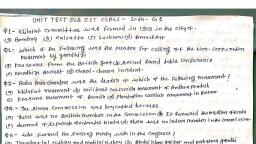 UNIT TEST SUB SST CLASS - 10th - G1
Q1- Khilafat Committee was formed in 1919 in the city of:
(a) Bombay (b) Calcutta (c) Lucknow (d) Amritsar
Q2- which of the following was the reason for calling off the Non-Cooperation
Movement by Gandhiji
from the British Govt. second round table conference
Gandhiji's arrest (d) Chauri-Chaura incident
Q3- Baba Ramchandra was the leader of which of the following movement?
Khilafat Movement (b) Militant Guerrilla Movement of Andhra Pradesh
Peasant Movement of Awadh (d) Plantation Workers Movement in Assam
Q4- The Simon Commission was boycotted because
there was no British member in the Commission (b) It demanded separate
(d) there was no Indian member in the commission
Q5- who formed the Swaraj Party with in the Congress?
Jawaharlal Nehru and Motilal Nehru (b) Abdul Kalam Azad and